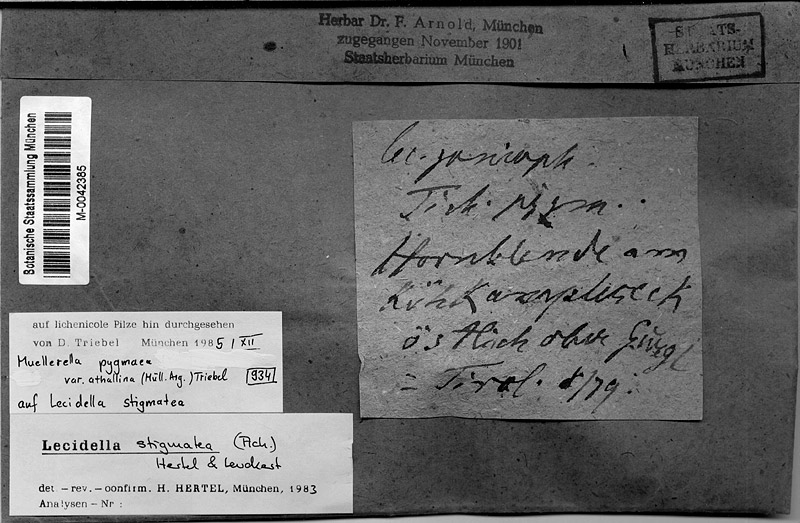 Herbar Dr. F. Arnold, München
zugegangen November 1901
Staatsherbarium München
STAATS-
HERBARIUM
MÜNCHEN
Botanische Staatssammlung München
M-0042385
Hornblende am
östlich ober Gurgl
Tirol. 8/79.
auf lichenicole Pilze hin durchgesehen
von D. Triebel München 1985 / XII
Muellerella pygmaea
var. athallina (Müll. Arg.) Triebel 934
auf Lecidella stigmatea
Lecidella stigmatea (Ach.)
Hertel & Leuckert
det. – rev. – confirm. H. HERTEL, München, 1983
Analysen – Nr :